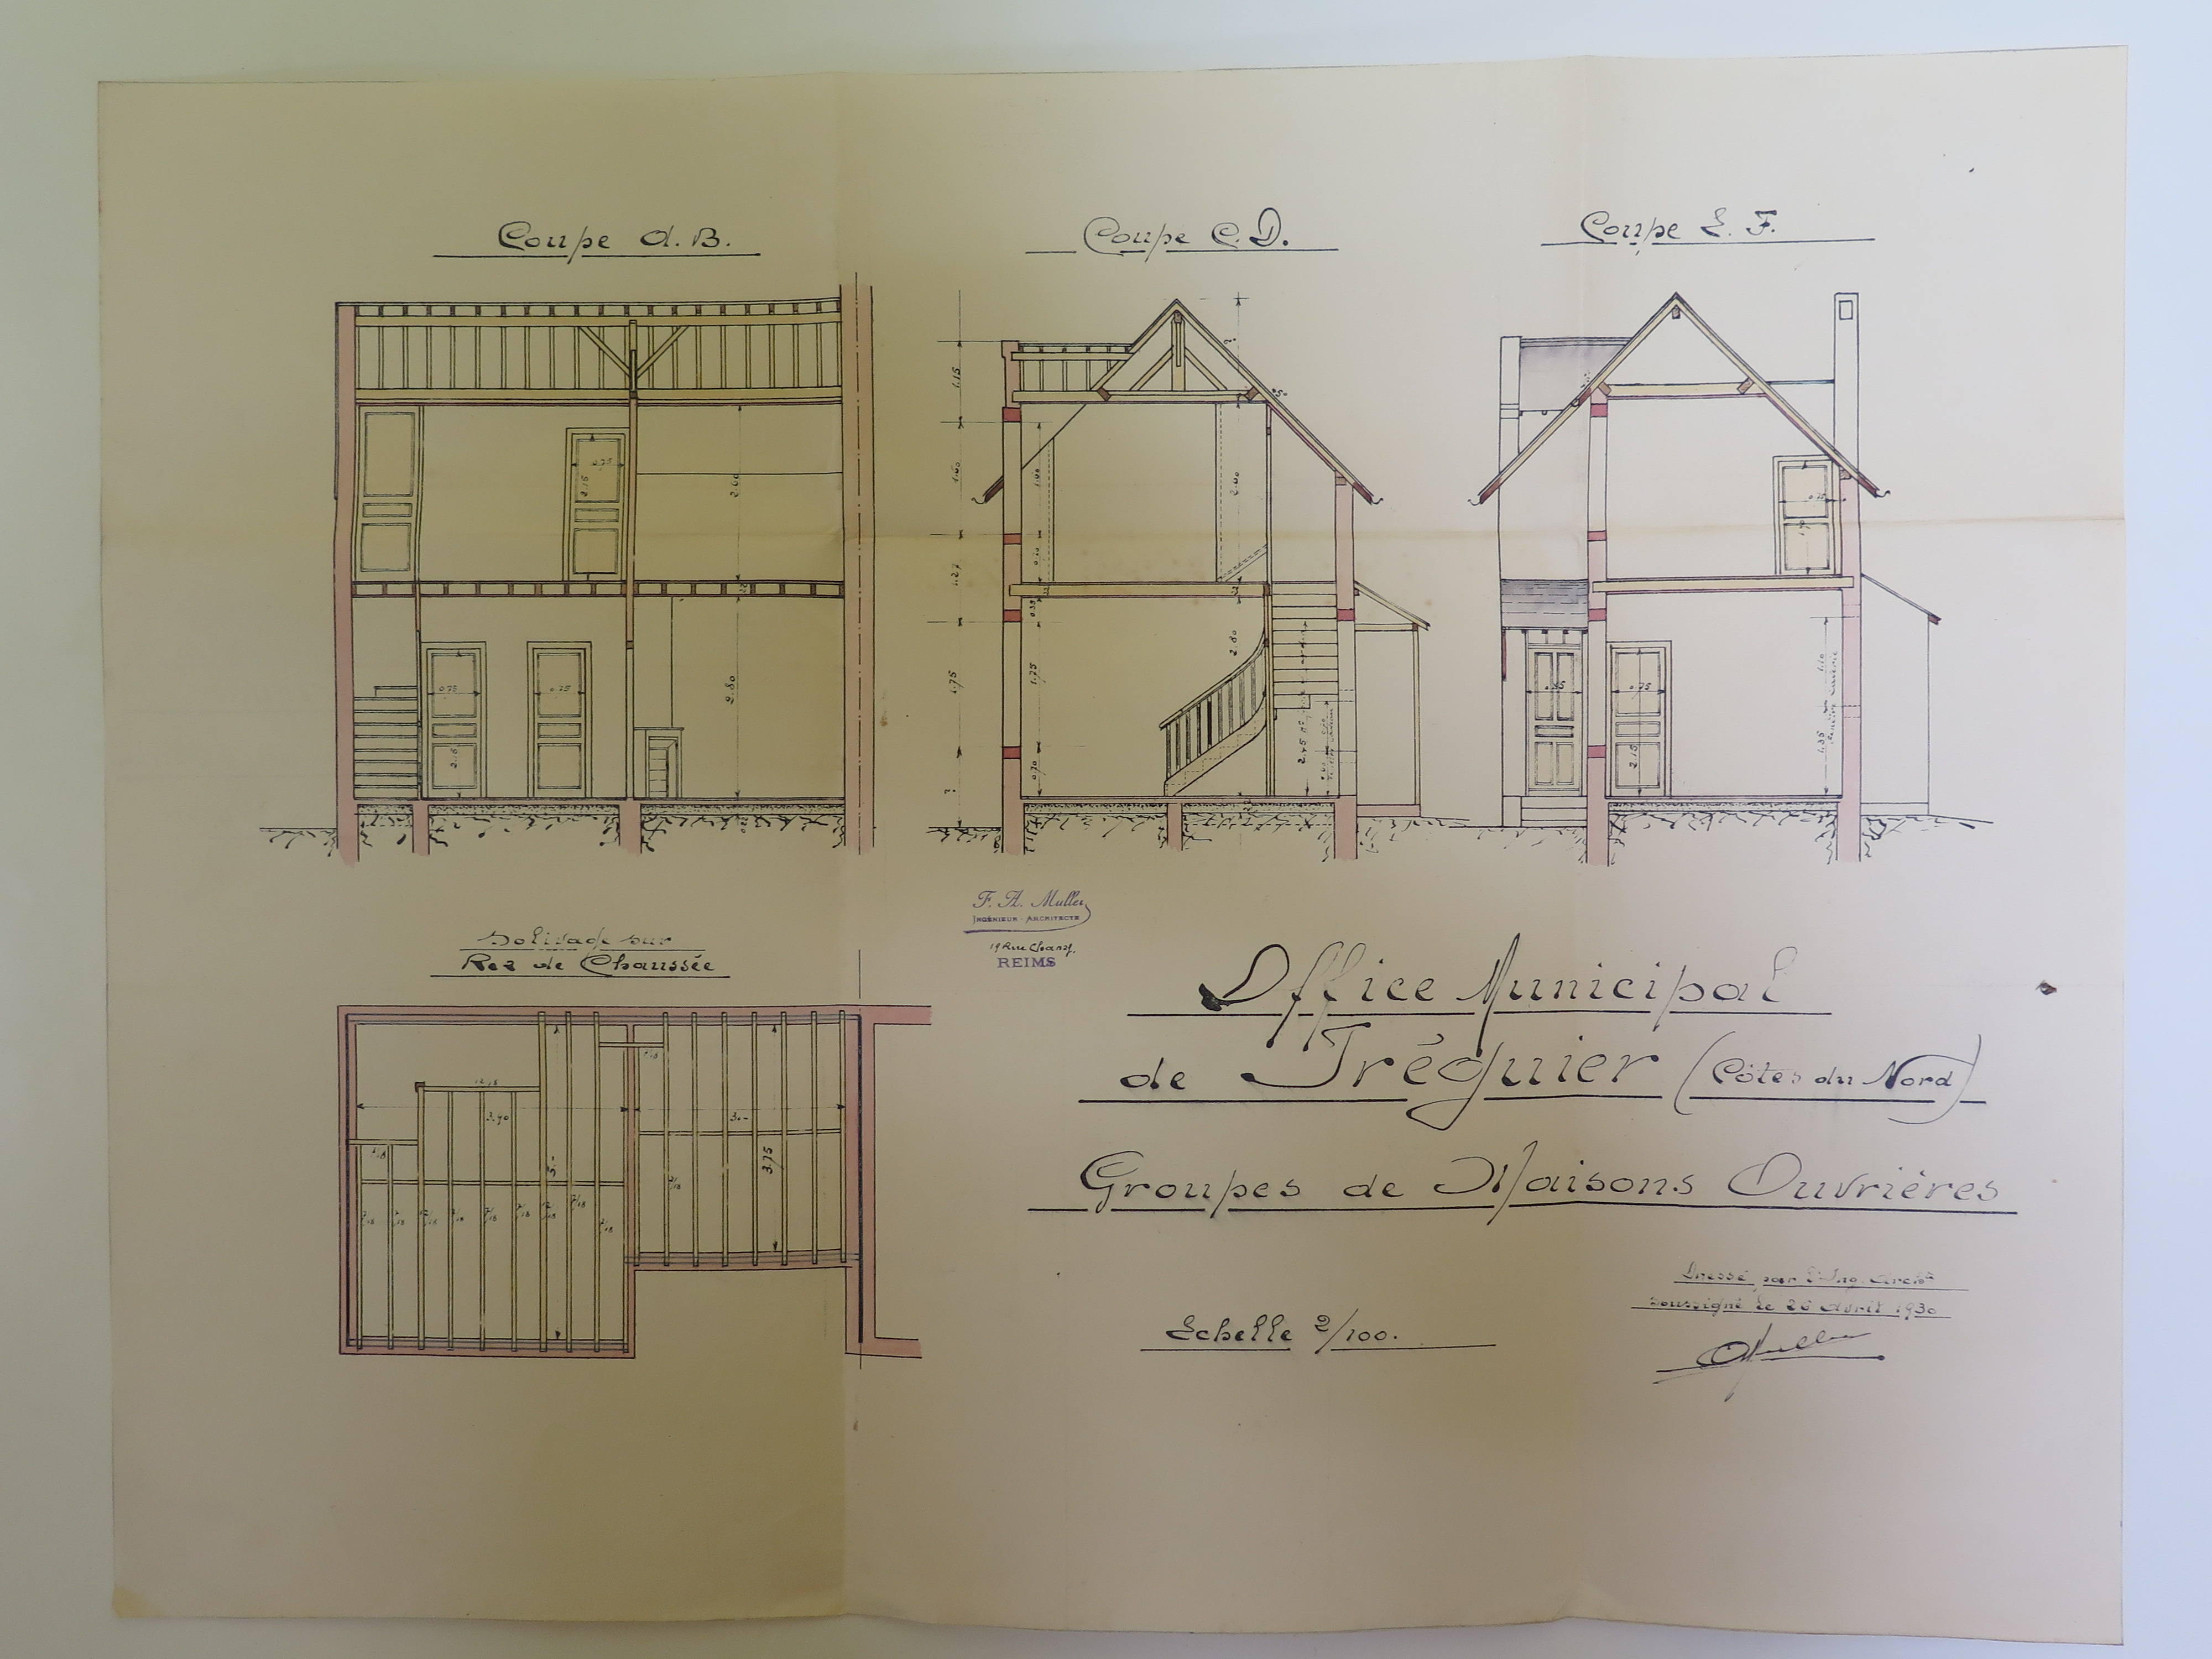 Coupe A. B.
Coupe C. D.
Coupe E. F.
1.15
2.15
0.75
2.60
1.90
0.75
0.75
0.75
2.15
2.80
1.75
1.75
0.70
2.80
0.75
2.15
1.35
F. A. Muller
INGÉNIEUR-ARCHITECTE
19 Rue Chanzy.
REIMS
Solivage sur
Rez de Chaussée
3.90
3.-
5.-
3.75
Office Municipal
de Tréguier (Côtes du Nord)
Groupes de Maisons Ouvrières
Echelle 2/100.
Dressé par l'Ing. Archte
soussigné le 26 Avril 1930
Muller